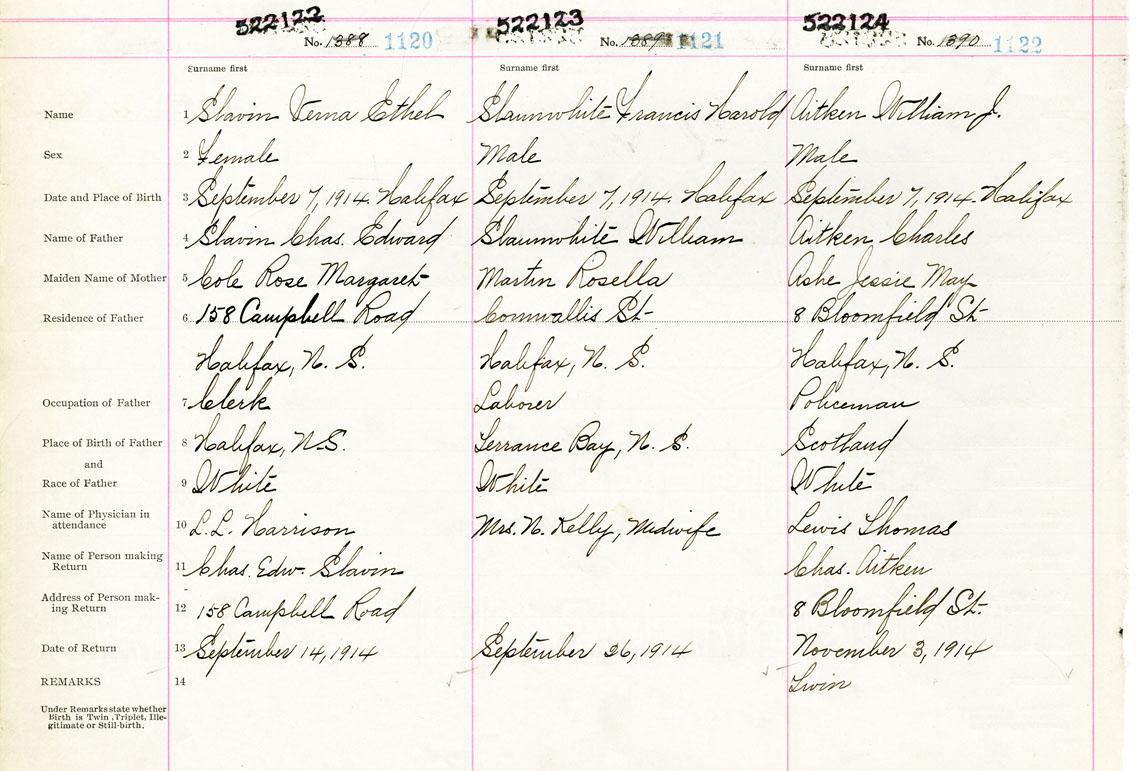 522122 522123 522124
No. 1388 1120 No. 1389 1121 No. 1390 1122
Surname first Surname first Surname first
Name 1 Slavin Verna Ethel Slaunwhite Francis Harold Aitken William J.
Sex 2 Female Male Male
Date and Place of Birth 3 September 7, 1914. Halifax September 7, 1914. Halifax September 7, 1914. Halifax
Name of Father 4 Slavin Chas. Edward Slaunwhite William Aitken Charles
Maiden Name of Mother 5 Cole Rose Margaret Martin Rosella Ashe Jessie May
Residence of Father 6 158 Campbell Road Cornwallis St 8 Bloomfield St
Halifax, N. S. Halifax, N. S. Halifax, N. S.
Occupation of Father 7 Clerk Laborer Policeman
Place of Birth of Father 8 Halifax, N.S. Terrance Bay, N. S. Scotland
and
Race of Father 9 White White White
Name of Physician in
attendance 10 L. L. Harrison Mrs. N. Kelly, Midwife Lewis Thomas
Name of Person making
Return 11 Chas. Edw. Slavin Chas. Aitken
Address of Person mak-
ing Return 12 158 Campbell Road 8 Bloomfield St
Date of Return 13 September 14, 1914 September 26, 1914 November 3, 1914
REMARKS 14 Twin
Under Remarks state whether
Birth is Twin, Triplet, Ille-
gitimate or Still-birth.